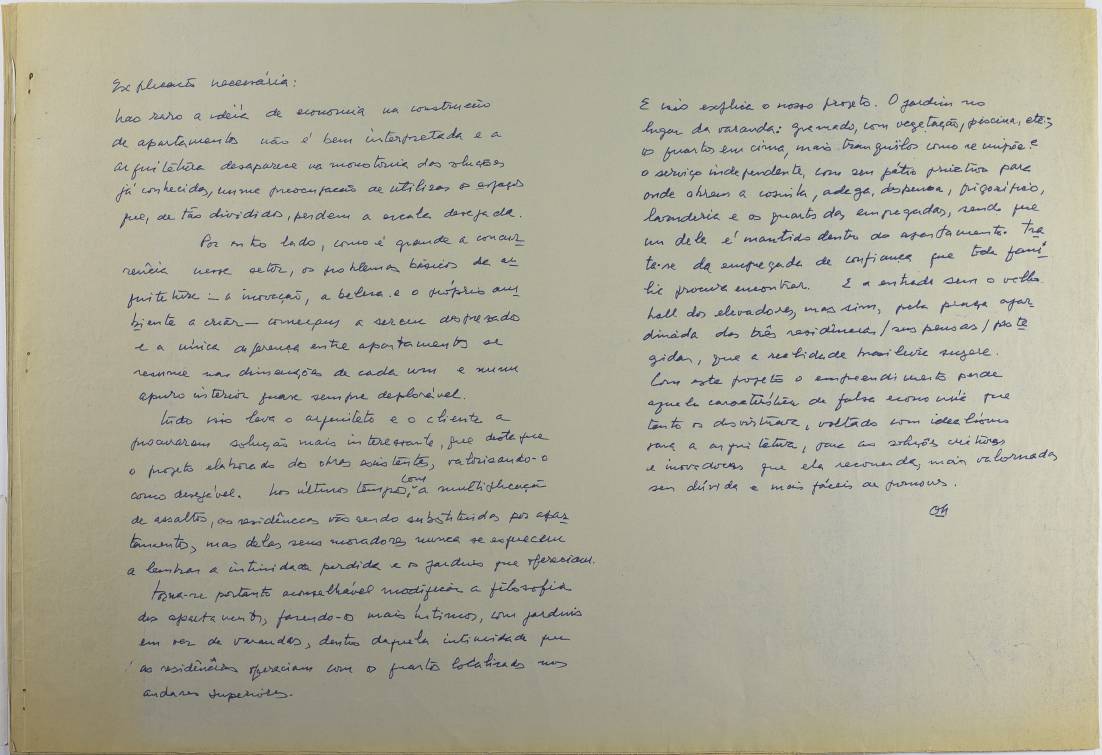 Explicação necessária:
Não raro a idéia de economia na construção
de apartamentos não é bem interpretada e a
arquitetura desaparece na monotonia das soluções
já conhecidas, numa preocupação de utilizar os espaços
que, de tão divididos, perdem a escala desejada.
Por outro lado, como é grande a concor-
rência nesse setor, os problemas básicos da ar-
quitetura – a inovação, a beleza e o próprio am-
biente a criar – começam a serem desprezados
e a única diferença entre apartamentos se
resume nas dimensões de cada um e numa
apuro interior quase sempre deplorável.
Tudo isso leva o arquiteto e o cliente a
procurarem solução mais interessante, que destaque
o projeto elaborado de obras existentes, valorizando-o
como desejável. Nos últimos tempos, com a multiplicação
de assaltos, as residências vão sendo substituidas por apar-
tamentos, mas delas seus moradores nunca se esquecem
a lembrar a intimidade perdida e os jardins que ofereciam.
Torna-se portanto aconselhável modificar a filosofia
dos apartamentos, fazendo-os mais íntimos, com jardins
em vez de varandas, dentro daquela intimidade que
as residências ofereciam com os quartos localizados nos
andares superiores.
E isso explica o nosso projeto. O jardim no
lugar da varanda: gramado, com vegetação, piscina, etc;
os quartos em cima, mais tranquilos como se impõe e
o serviço independente, com seu pátio privativo para
onde abrem a cosinha, adega, despensa, frigorifico,
lavanderia e os quartos das empregadas, sendo que
um dele é mantido dentro do apartamento. Tra-
ta-se da empregada de confiança que toda famí-
lia procura encontrar. E a entrada sem o velho
hall dos elevadores, mas sim, pela praça ajar-
dinada das três residências / suspensas / prote-
gidas, que a realidade brasileira sugere.
Com este projeto o empreendimento perde
aquela característica de falsa economia que
tanto os desvirtuava, voltado com idealismo
para a arquitetura, para as soluções criativas
e inovadoras que ela recomenda, mais valorizadas
sem dúvida e mais fáceis de
ON